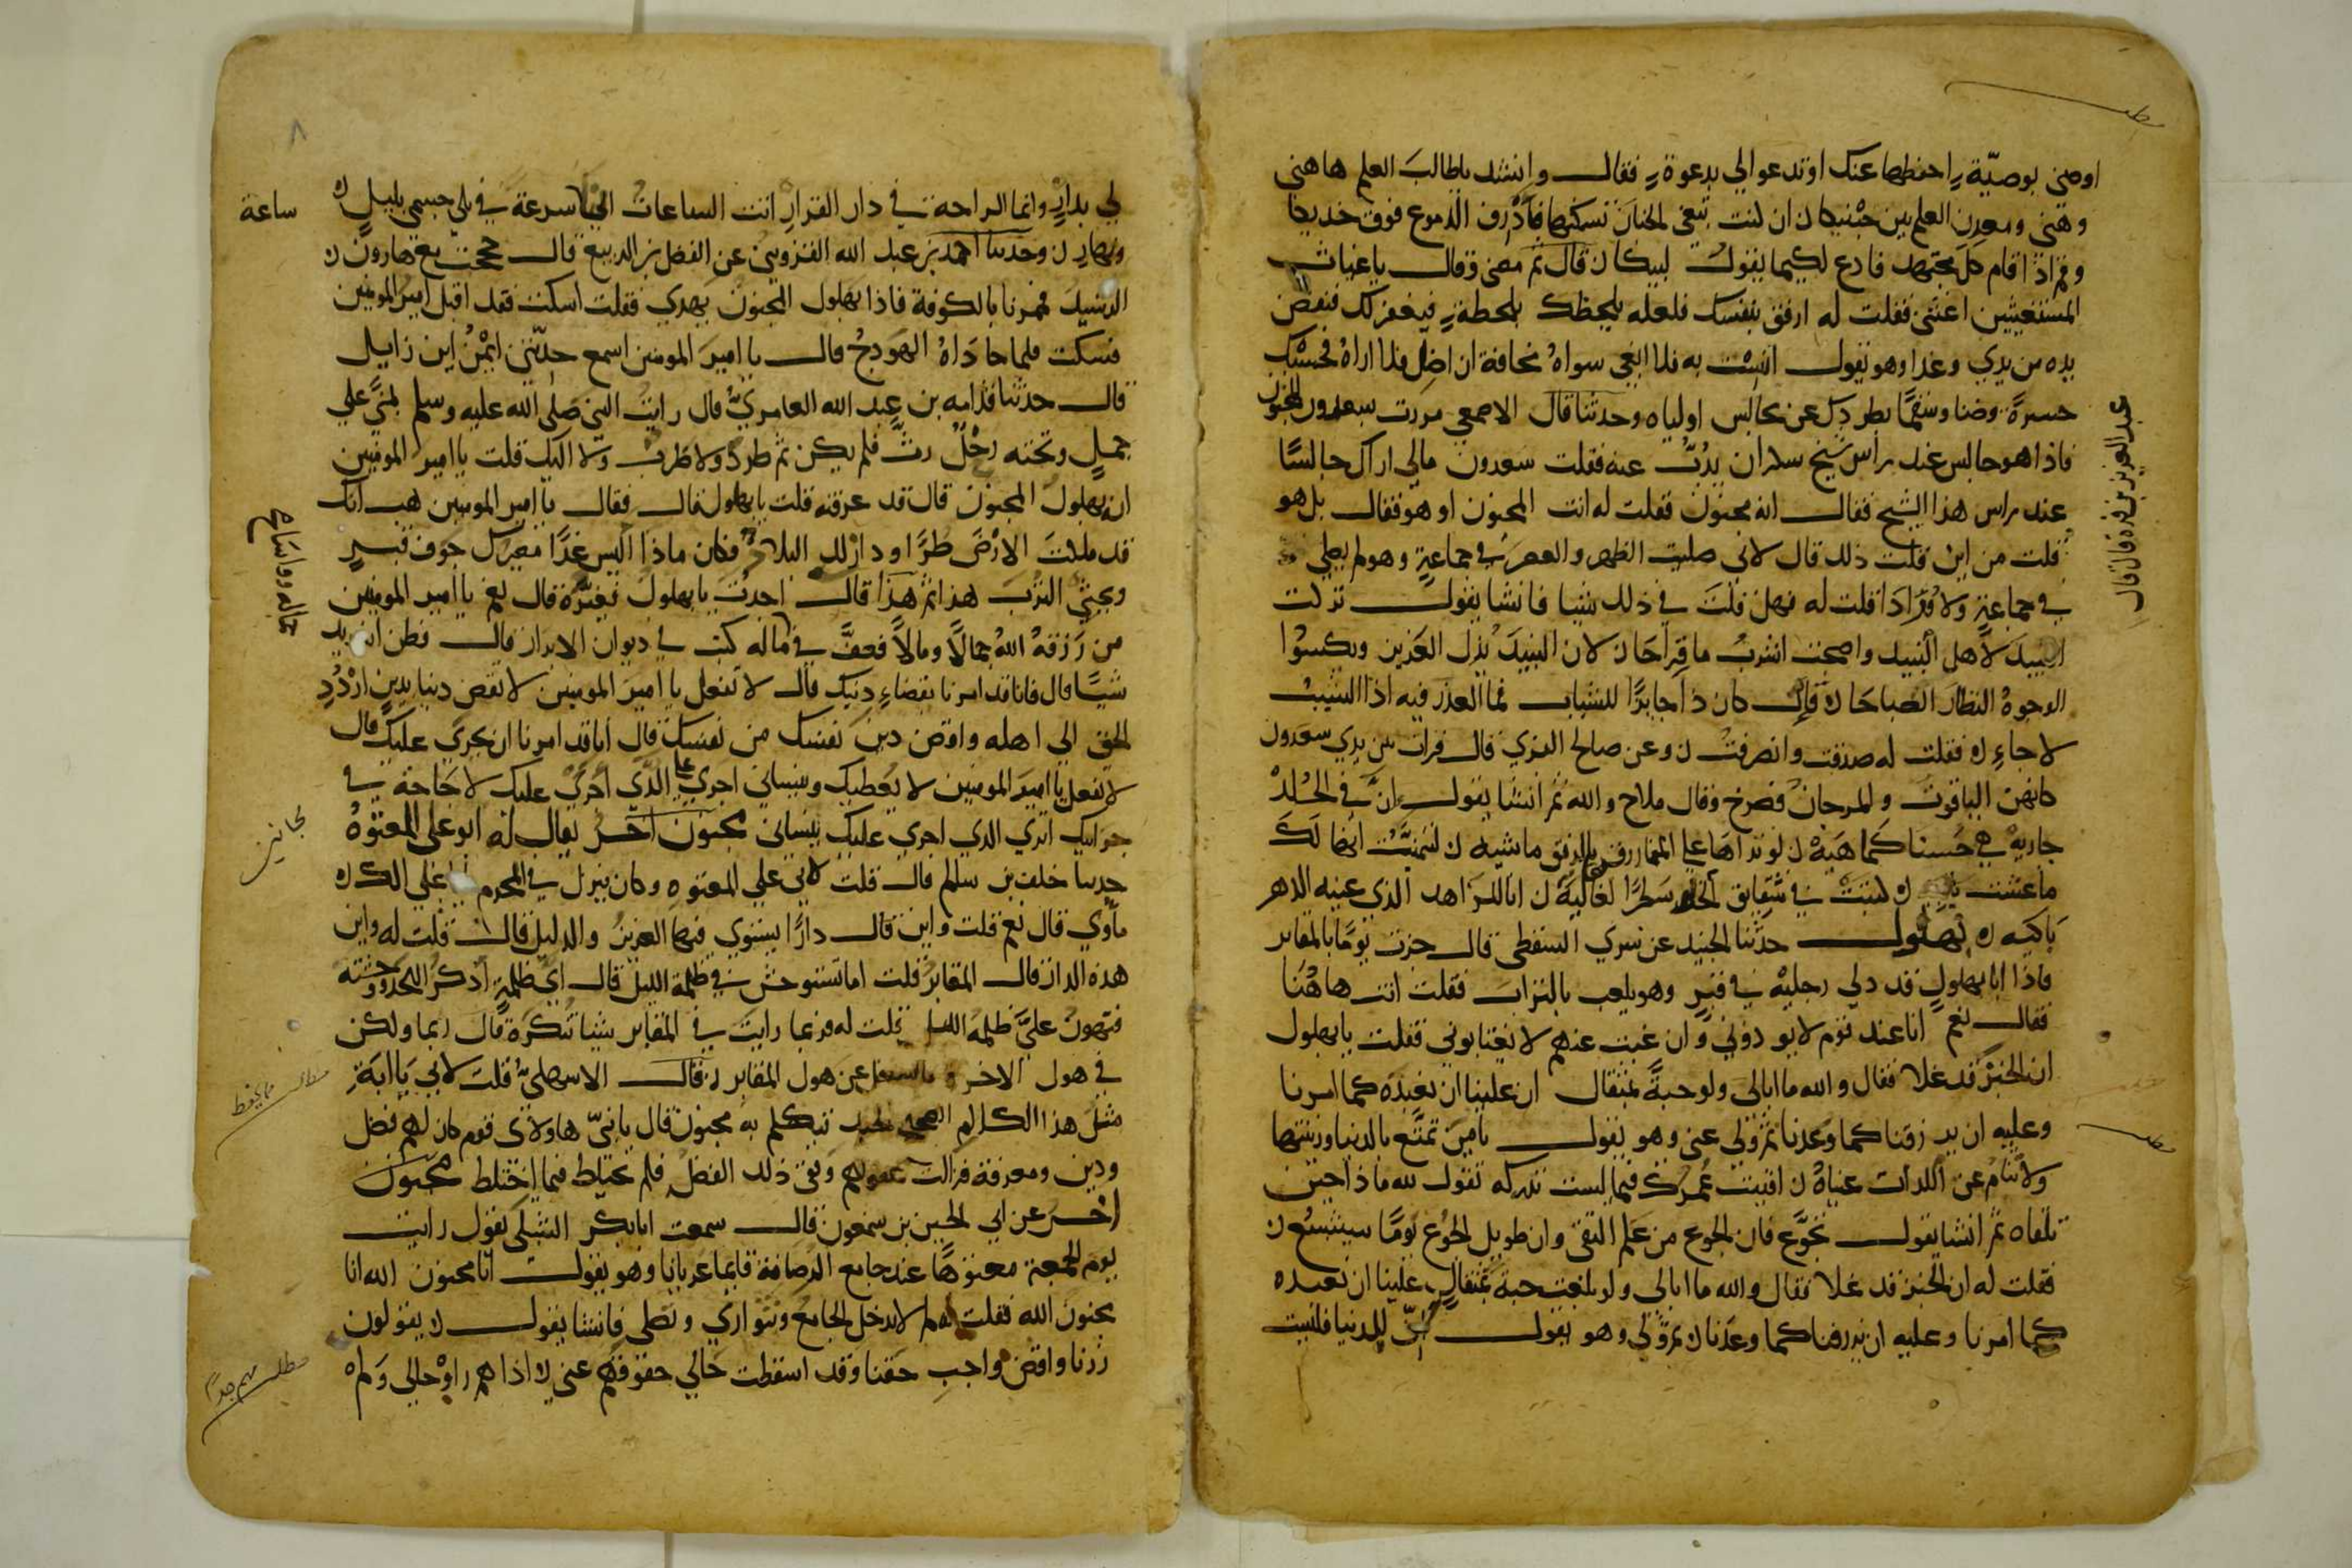 اوصني بوصيّة احفظها عنك او تدعوا لي بدعوة فقال وانشد يا طالب العلم هاهنى
وهنى ومعدن العلم بين جنبيكا ان كنت تبغى الجنان تسكنها فاذرف الدموع فوق خديكا
وقم اذا قام كل مجتهد فادع لكيما يقول لبيكا قال ثم مضى وقال يا غياث
المستغيثين اغثنى فقلت له ارفق بنفسك فلعله يلحظك بلحظة فيغفر لك فنفض
يده من يدي وغدا وهو يقول انست به فلا ابغى سواه مخافة ان اضل فلا اراه فحسبك
حسرة وضنا وسقما بطردك عن مجالس اولياه وحدثنا قال الاصمعي مررت بسعدون المجنون
فاذا هو جالس عند راس شيخ سكران يذب عنه فقلت سعدون مالي اراك جالسا
عند راس هذا الشيخ فقال انه مجنون فقلت له انت المجنون او هو فقال بل هو
قلت من اين قلت ذلك قال لاني صليت الظهر والعصر في جماعة وهو لم يصلي
في جماعة ولا فرادا قلت له فهل قلت في ذلك شيا فانشا يقول تركت
النبيذ لاهل النبيذ واصبحت اشرب ماقراحا لان النبيذ يذل العزيز ويكسوا
الوجوه النظار الصباحا فان كان ذا جايزا للشباب فما العذر فيه اذا الشيب
لاحا فقلت له صدقت وانصرفت وعن صالح المزي قال قرات بين يدي سعدون
كانهن الياقوت والمرجان فصرخ وقال ملاح والله ثم انشا يقول ان في الخلد
جارية هي حسنا كما هيه لو تراها على النمارق
ماعشت انا للزاهد الذي عينه الدهر
باكيه بهلول حدثنا الجنيد عن سري السقطي قال جزت يوما بالمقابر
فاذا انا ببهلول قد دلى رجليه في قبر وهو يلعب بالتراب فقلت انت هاهنا
فقال نعم انا عند قوم لا يوذوني وان غبت عنهم لا يغتابوني فقلت يا بهلول
ان الخبز قد غلا فقال والله ما ابالي ولو حبة بمثقال ان علينا ان نعبده كما امرنا
وعليه ان يرزقنا كما وعدنا ثم ولى عني وهو يقول يا من تمتع بالدنيا وزينتها
ولا تنام عن اللذات عيناه افنيت عمرك فيما لست تدركه تقول لله ماذا حين
تلقاه ثم انشا يقول تجوّع فان الجوع من علم التقى وان طويل الجوع يوما سيشبع
فقلت له ان الخبز قد غلا فقال والله ما ابالي ولو بلغت حبة بمثقال علينا ان نعبده
كما امرنا وعليه ان يرزقنا كما وعدنا ثم ولى وهو يقول افّ للدنيا فليست
عبد العزيز بن قره قال قال
٨
لي بدار وانما الراحة في دار القرار ابت الساعات الا سرعة في بلي جسمي بليل
ساعة
ونهار وحدثنا احمد بن عبد الله القزويني عن الفضل بن الربيع قال حججت مع هارون
الرشيد فمررنا بالكوفة فاذا بهلول المجنون يهذي فقلت اسكت فقد اقبل امير المومنين
فسكت فلما حاذاه الهودج قال يا امير المومنين اسمع حدثني ايمن ابن نايل
قال حدثنا قدامه بن عبد الله العامري قال رايت النبي صلى الله عليه وسلم بمنى على
جمل وتحته رحل رث فلم يكن ثم طرد ولا ضرب ولا اليك قلت يا امير المومنين
انه بهلول المجنون قال قد عرفته قلت يا بهلول فقال يا امير المومنين هب انك
قد ملكت الارض طرا ودان لك البلاد فكان ماذا اليس غدا مصيرك جوف قبر
ويحثى الترب هذا ثم هذا قال اجدت يا بهلول فغيره قال نعم يا امير المومنين
من رزقه الله جمالا ومالا فعف في ماله كتب في ديوان الابرار قال فظن انه يريد
شيا قال فانا قد امرنا بقضاء دينك قال لا تفعل يا امير المومنين لا تقض دينا بدين اردد
الحق الى اهله واقض دين نفسك من نفسك قال انا قد امرنا ان يجرى عليك قال
لا تفعل يا امير المومنين لا يعطيك وينساني اجرى على الذي اجرى عليك لا حاجة في
جرايتك الذي اجرى عليك ينساني مجنون آخر يقال له ابو علي المعتوه
مجانين
حدثنا خلف بن سالم قال قلت لابي علي المعتوه وكان ينزل في المخرم
ماوي قال نعم قلت واين قال دارا يستوي فيها العزيز والذليل قال قلت له واين
هذه الدار قال المقابر قلت اما تستوحش في ظلمة الليل قال اني اذكر ظلمة اللحد ووحشته
فتهون علي ظلمة الليل قلت له فربما رايت في المقابر شيا تنكره قال ربما ولكن
في هول الاخرة ما يشغل عن هول المقابر قال قلت لابي يا ابة
مثل هذا الكلام الصحيح الجيد تتكلم به مجنون قال يا بني هاولاى قوم كان لهم فضل
ودين ومعرفة فزالت عقولهم وبقى ذلك الفضل فلم تختلط فيما اختلط مجنون
آخر عن ابي الحسين بن سمعون قال سمعت ابا بكر الشبلي يقول رايت
يوم الجمعة معتوها عند جامع الرصافة قايما عريانا وهو يقول انا مجنون الله انا
مجنون الله فقلت له لم لا تدخل الجامع وتتوارى وتصلي فانشا يقول يقولون
زرنا واقض واجب حقنا وقد اسقطت حالي حقوقهم عني اذا هم راوا حالي ولم